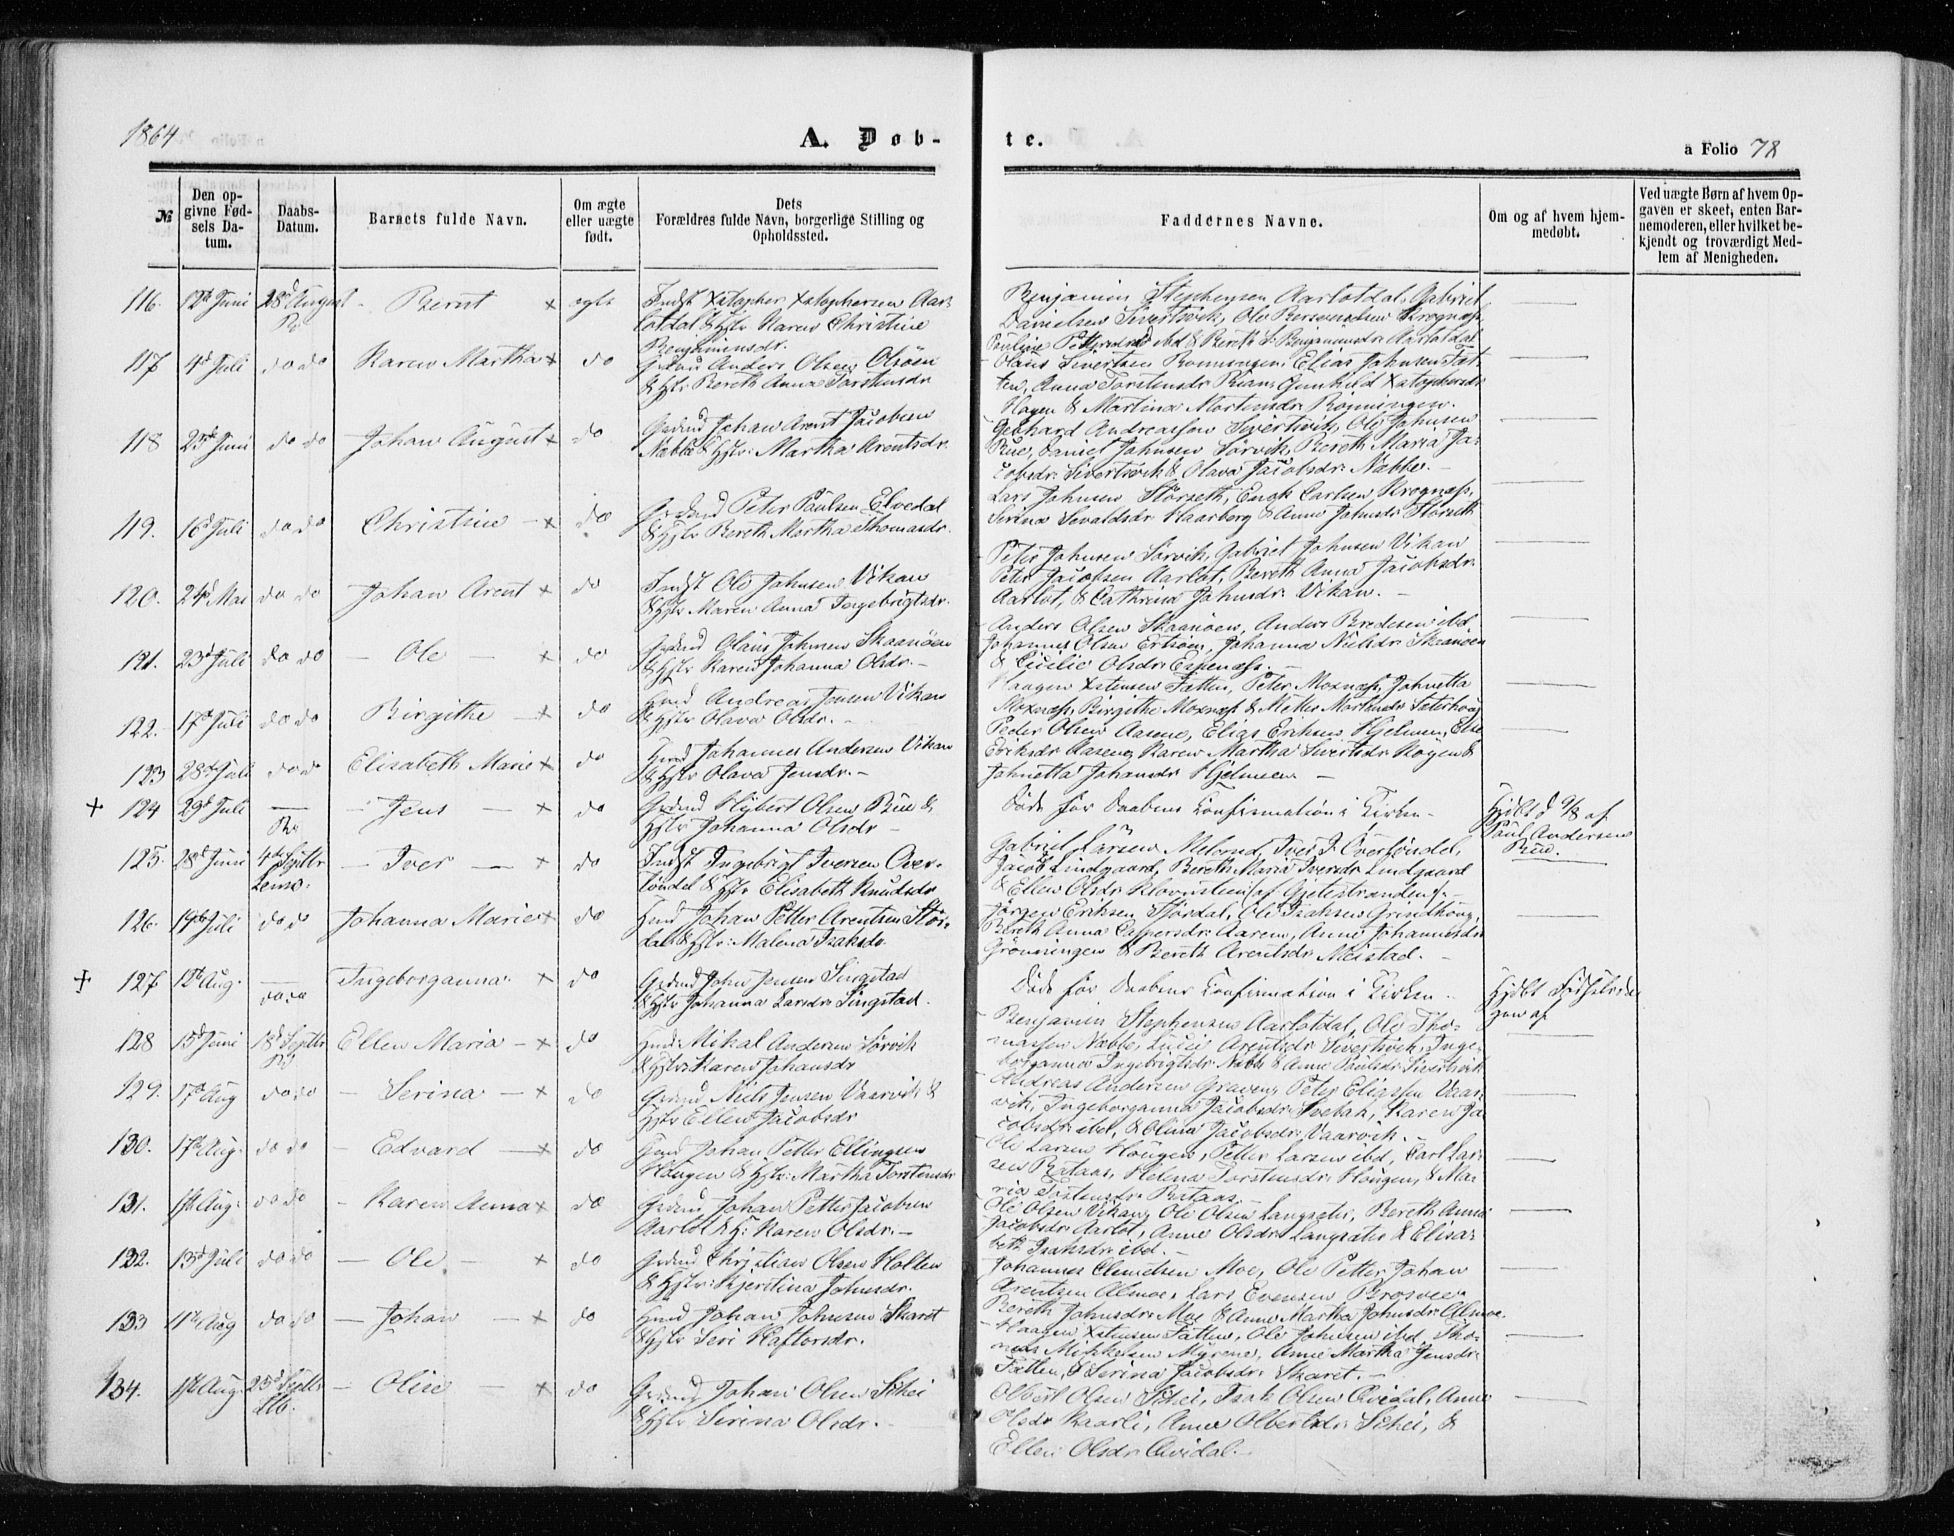 1864
A. Døb-
te.
a Folio 78
№
Den op-
givne Fød-
sels Da-
tum.
Daabs-
Datum.
Barnets fulde Navn.
Om ægte
eller uægte
født.
Dets
Forældres fulde Navn, borgerlige Stilling og
Opholdssted.
Faddernes Navne.
Om og af hvem hjem-
medøbt.
Ved uægte Børn af hvem Op-
gaven er skeet, enten Bar-
nemoderen, eller hvilket be-
kjendt og troværdigt Med-
lem af Menigheden.
116. 12te Juni 28d August Bernt × ægte Indst Xstopher Xstophersen Aar-
lotdal & Hstr Karen Christine
Benjaminsdr.
Benjamin Stephensen Aarlotdal, Gabriel
Danielsen Sivertsvik, Ole Krognæss,
ibd & Bereth Benjaminsdr Aarlotdal
117 4d Juli do do Karen Martha × do Anders Olsen
& Hstr Bereth Anna Torstensdr
Olaus Sivertsen Elias Johnsen Fæt-
ten, Anna Torstensdr Gunhild Xstophersdr
Haugen & Martina Mortensdr Rönningen.
118 23d Juni do do Johan August × do Grdmd Johan Arent Jacobsen
Nebbe & Hstr: Martha Arentsdr.
Gerhard Andreassen Sivertsvik, Ole Johnsen
Rue, Daniel Johnsen Sørvik, Bereth Maria Ja-
cobsdr Sivertsvik & Olava Jacobsdr Næbbe.
119. 16d Juli do do Christine × do Grdmd Peter Paulsen Elvedal
& Hstr Bereth Martha Thomasdr.
Lars Johnsen Störseth, Enok Carlsen Krognæss,
Serina Sevaldsdr Haarberg & Anne Johnsdr Störseth
120. 24d Mai do do Johan Arent × do Indst Ole Johnsen Vikan
& Hstr Maren Anna Ingebrigtsdr.
Peter Johnsen Sørvik, Gabriel Johnsen Vikan
Peter Jacobsen Aarlot, Bereth Anna Jacobsdr
Aarlot, & Cathrina Johnsdr Vikan.
121. 23d Juli do do Ole × do Grdmd Olaus Johnsen Skaanöen
& Hstr Karen Johanna Olsdr.
Anders Olsen Skaanöen, Anders Bredesen ibd
Johannes Olsen Ertsöen, Johanna Nielsdr Skaanöen
& Cicilie Olsdr Espenæss.
122. 17d Juli do do Birgithe × do Andreas Jensen Vikan
& Hstr Olava Olsdr.
Haagen Xstensen Fætten, Peter Moxnæss, Johnetta
Moxnæss, Birgithe Moxnæss & Mette Martinsdr
123 28d Juli do do Elisabeth Marie × do Johannes Andersen Vikan
& Hstr Olava Jensdr.
Peder Olsen Aasene, Elias Eriksen Hjelmen, Else
Eriksdr Karen Martha Sivertsdr &
Johnetta Johansdr Hjelmsen
124 29d Juli Jens × do Grdmd Hybert Olsen Rue &
Hstr Johanna Olsdr
Døde før Daabens Confirmation i Kirken.
Hjdbt d af
Paul Andersen
Rue.
125. 28d Juni 4d Septbr
Lensv. Iver × do Indst Ingebrigt Iversen Over-
löndal & Hstr Elisabeth Knudsdr
Gabriel Larsen Iver I. Overlöndal,
Jacob Lindgaard, Bereth Maria Iversdr Lindgaard
& Ellen Olsdr
126. 14d Juli do do Johanna Marie × do Johan Petter Arentsen
& Hstr: Malena Isaksdr
Jörgen Eriksen Ole Isaksen Grindhaug,
Bereth Anna Caspersdr Aaren, Anne Johannesdr
Grönningen & Bereth Arentsdr Meistad.
127 12te Aug. do do Ingeborganna × do Grdmd John Jensen Singstad
& Hstr Johanna Larsdr Singstad.
Døde før Daabens Confirmation i Kirken.
Hjdbt Fødselsda-
gen af
128 15d Juni 18d Septbr Ellen Maria × do Mikal Andersen Sørvik
& Hstr Karen Johansdr
Benjamin Stephensen Aarlotdal, Ole Tho-
massen Næbbe, Lucie Arentsdr Sivertsvik, Inge-
borganna Ingebrigtsdr Næbbe & Anne Paulsdr Sivertsvik
129. 17d Aug do do Serina × do Grdmd Niels Jensen Vaarvik &
Hstr Ellen Jacobsdr
Andreas Andersen Graven, Peter Eliassen Vaar-
vik, Ingeborganna Jacobsdr Karen Ja-
cobsdr ibd, & Olina Jacobsdr Vaarvik.
130. 17de Aug. do do Edvard × do Johan Petter Ellingsen
Haugen & Hstr: Martha Torstensdr
Ole Larsen Haugen, Petter Larsen ibd, Carl Lar-
sen Rataas, Helena Torstensdr Haugen, & Ma-
ria Torstensdr Rataas.
131. Aug. do do Karen Anna × do Grdmd Johan Petter Jacobsen
Aarlot & H: Karen Olsdr.
Ole Olsen Vikan, Ole Olsen Langsæter, Bereth Anna
Jacobsdr Aarlot, Anne Olsdr Langsæter & Elisa-
beth Isaksdr ibd.
132. 13d Juli do do Ole × do Grdmd Christian Olsen Holten
& Hstr: Kjerstina Johnsdr.
Johannes Clemetsen Moe, Ole Petter Johan
Arentsen Almoe, Lars Evensen
Bereth Johnsdr Moe & Anne Martha Johnsdr Almoe.
133 11te Aug do do Johan × do Johan Johnsen Skaret
& Hstr Seri Haftorsdr.
Haagen Xstensen Fætten, Ole Johnsen ibd, Tho-
mas Mikkelsen Myrene, Anne Martha Jensdr
Fætten, & Serina Jacobsdr Skaret.
134. Aug. 25d Septbr
Stb. Oline × do Grdmd Johan Olsen Schei
& Hstr Serina Olsdr.
Olbert Olsen Schei, Isak Olsen Qvidal, Anne
Olsdr Kaarli, Anne Olbertsdr Schei, &
Ellen Olsdr Qvidal.